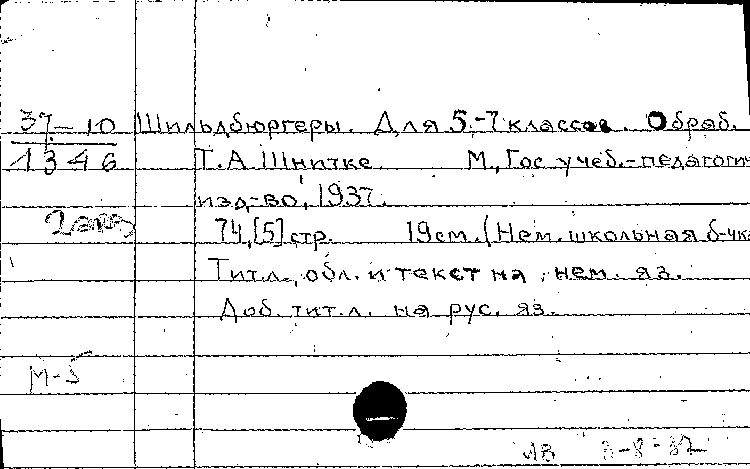 37-10 Шильдбюргеры. Для 5-7 классов. Обраб.
1346 Т.А. Шнитке М., Гос. учеб.-педагогич
изд-во, 1937.
2 экз 74,[5] стр. 19 см. (Нем. школьная б-чка
Тит.л., обл. и текст на нем. яз.
Доб. тит.л. на рус. яз.
М-5